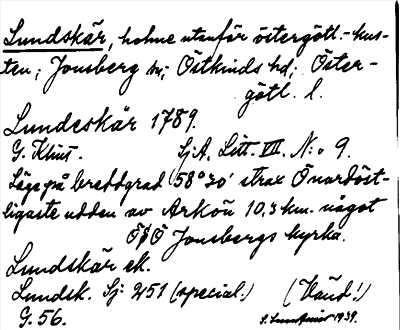 Lundskär, holme utanför östergötl.-kus-
ten; Jonsberg sn; Östkinds hd; Öster-
götl. l.
Lundeskär 1789.
G. Klint. SjA. Litt. VII. N:o 9.
Läge på breddgrad 58°30' strax Ö nordöst-
ligaste udden av Arkön 10.3 km. något
ÖSÖ Jonsbergs kyrka.
Lundskär ek.
Lundsk. Sj: 251 (special.) (Vänd!)
G. 56. 1939.